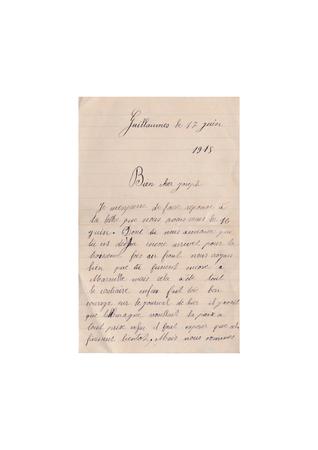 Guillaumes le 17 juin
1915
Bien cher joseph
Je m'empresse de faire reponse à
la lettre que nous avons recu le 10
juin. Dont tu nous annonce que
tu es deja encore arrivet pour la
troisieme fois au front nous croyons
bien que tu fusient encore a
Marseille mais cela a été tout
le contraire enfin fait toi bon
courage sur le journal de hier il y avait
que l'Allemagne voullent la paix a
tout prix enfin il faut esperer que cela
finiront bientot. Mais nous sommes